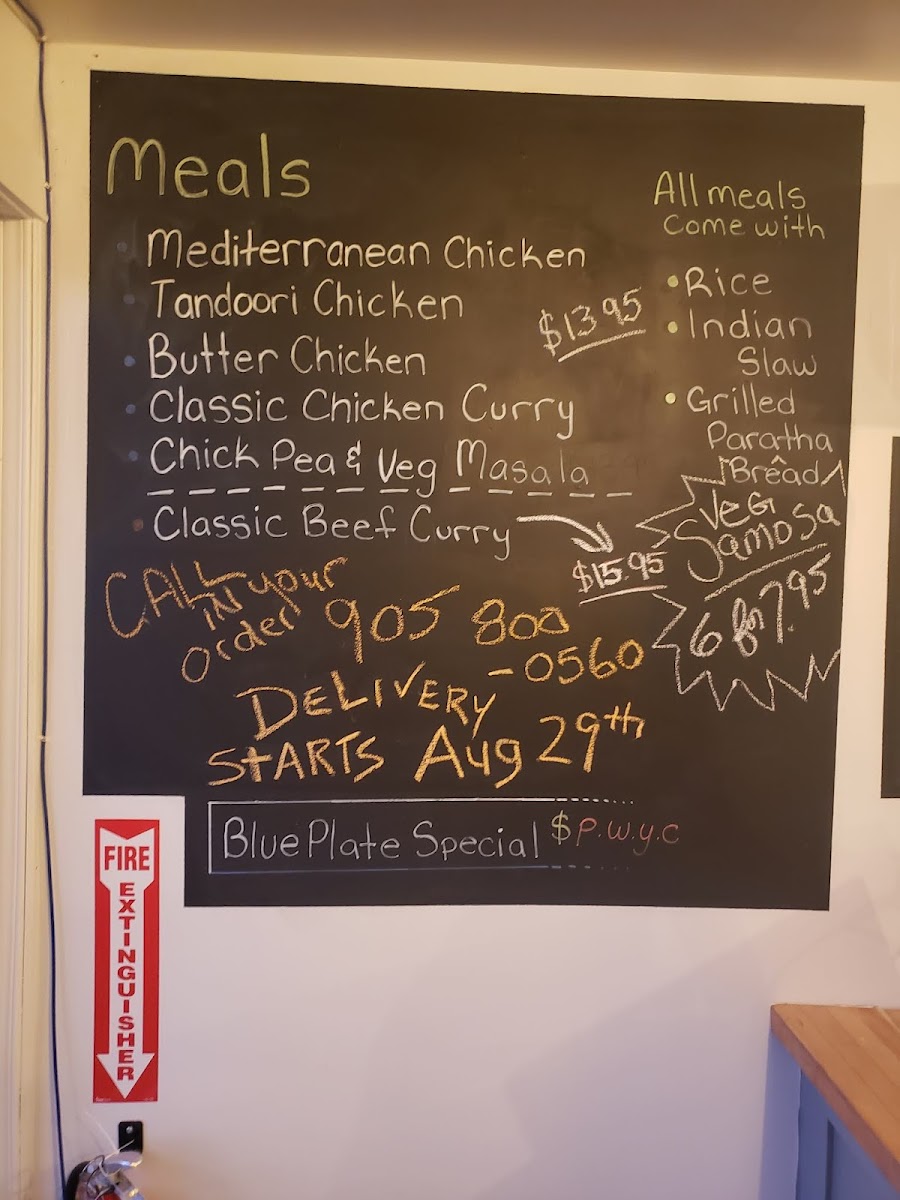 Meals
Mediterranean Chicken
Tandoori Chicken
Butter Chicken
Classic Chicken Curry
Chick Pea & Veg Masala
$13.95
Classic Beef Curry
$15.95
All meals
come with
Rice
Indian
Slaw
Grilled
Paratha
Bread
VEG
Samosa
6 for 7.95
CALL IN your
order
905 800
-0560
DELIVERY
STARTS Aug 29th
Blue Plate Special $ P.W.Y.C
FIRE
EXTINGUISHER